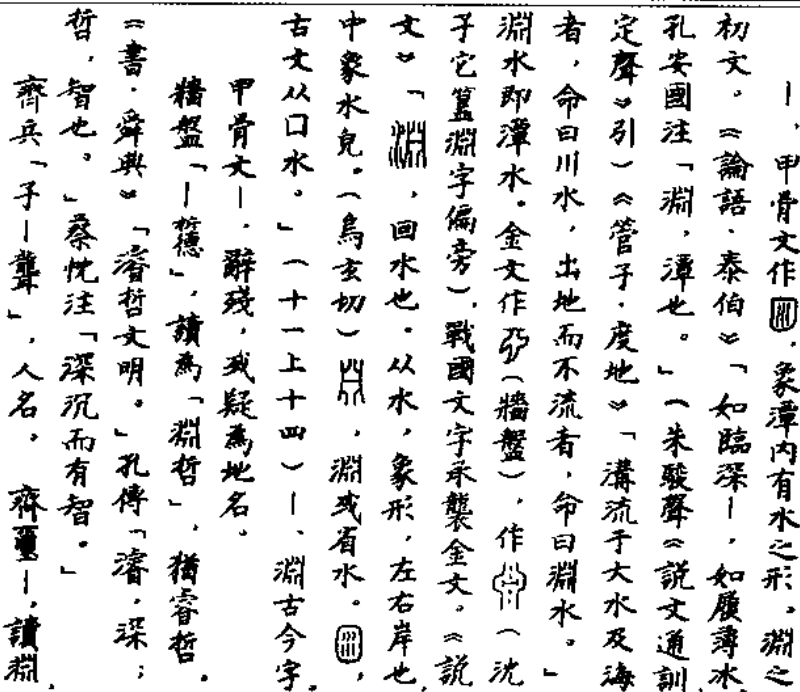 丨、甲骨文作，象潭内有水之形。淵之
初文。《論語·泰伯》「如臨深丨，如履薄冰。」
孔安國注「淵，潭也。」（朱駿聲《說文通訓
定聲》引）《管子·度地》「溝流于大水及海
者，命曰川水，出地而不流者，命曰淵水。」
淵水即潭水。金文作（牆盤），作（沈
子它簋淵字偏旁）。戰國文字承襲金文。《說
文》「，回水也。从水，象形，左右岸也，
中象水皃。（烏玄切），淵或省水。，
古文从囗水。」（十一上十四）丨、淵古今字。
甲骨文丨，辭殘，或疑爲地名。
牆盤「丨悊德」，讀爲「淵哲」，猶睿哲。
《書·舜典》「濬哲文明。」孔傳「濬，深；
哲，智也。」蔡忱注「深沉而有智。」
齊兵「子丨聾」，人名。 齊璽丨，讀淵，